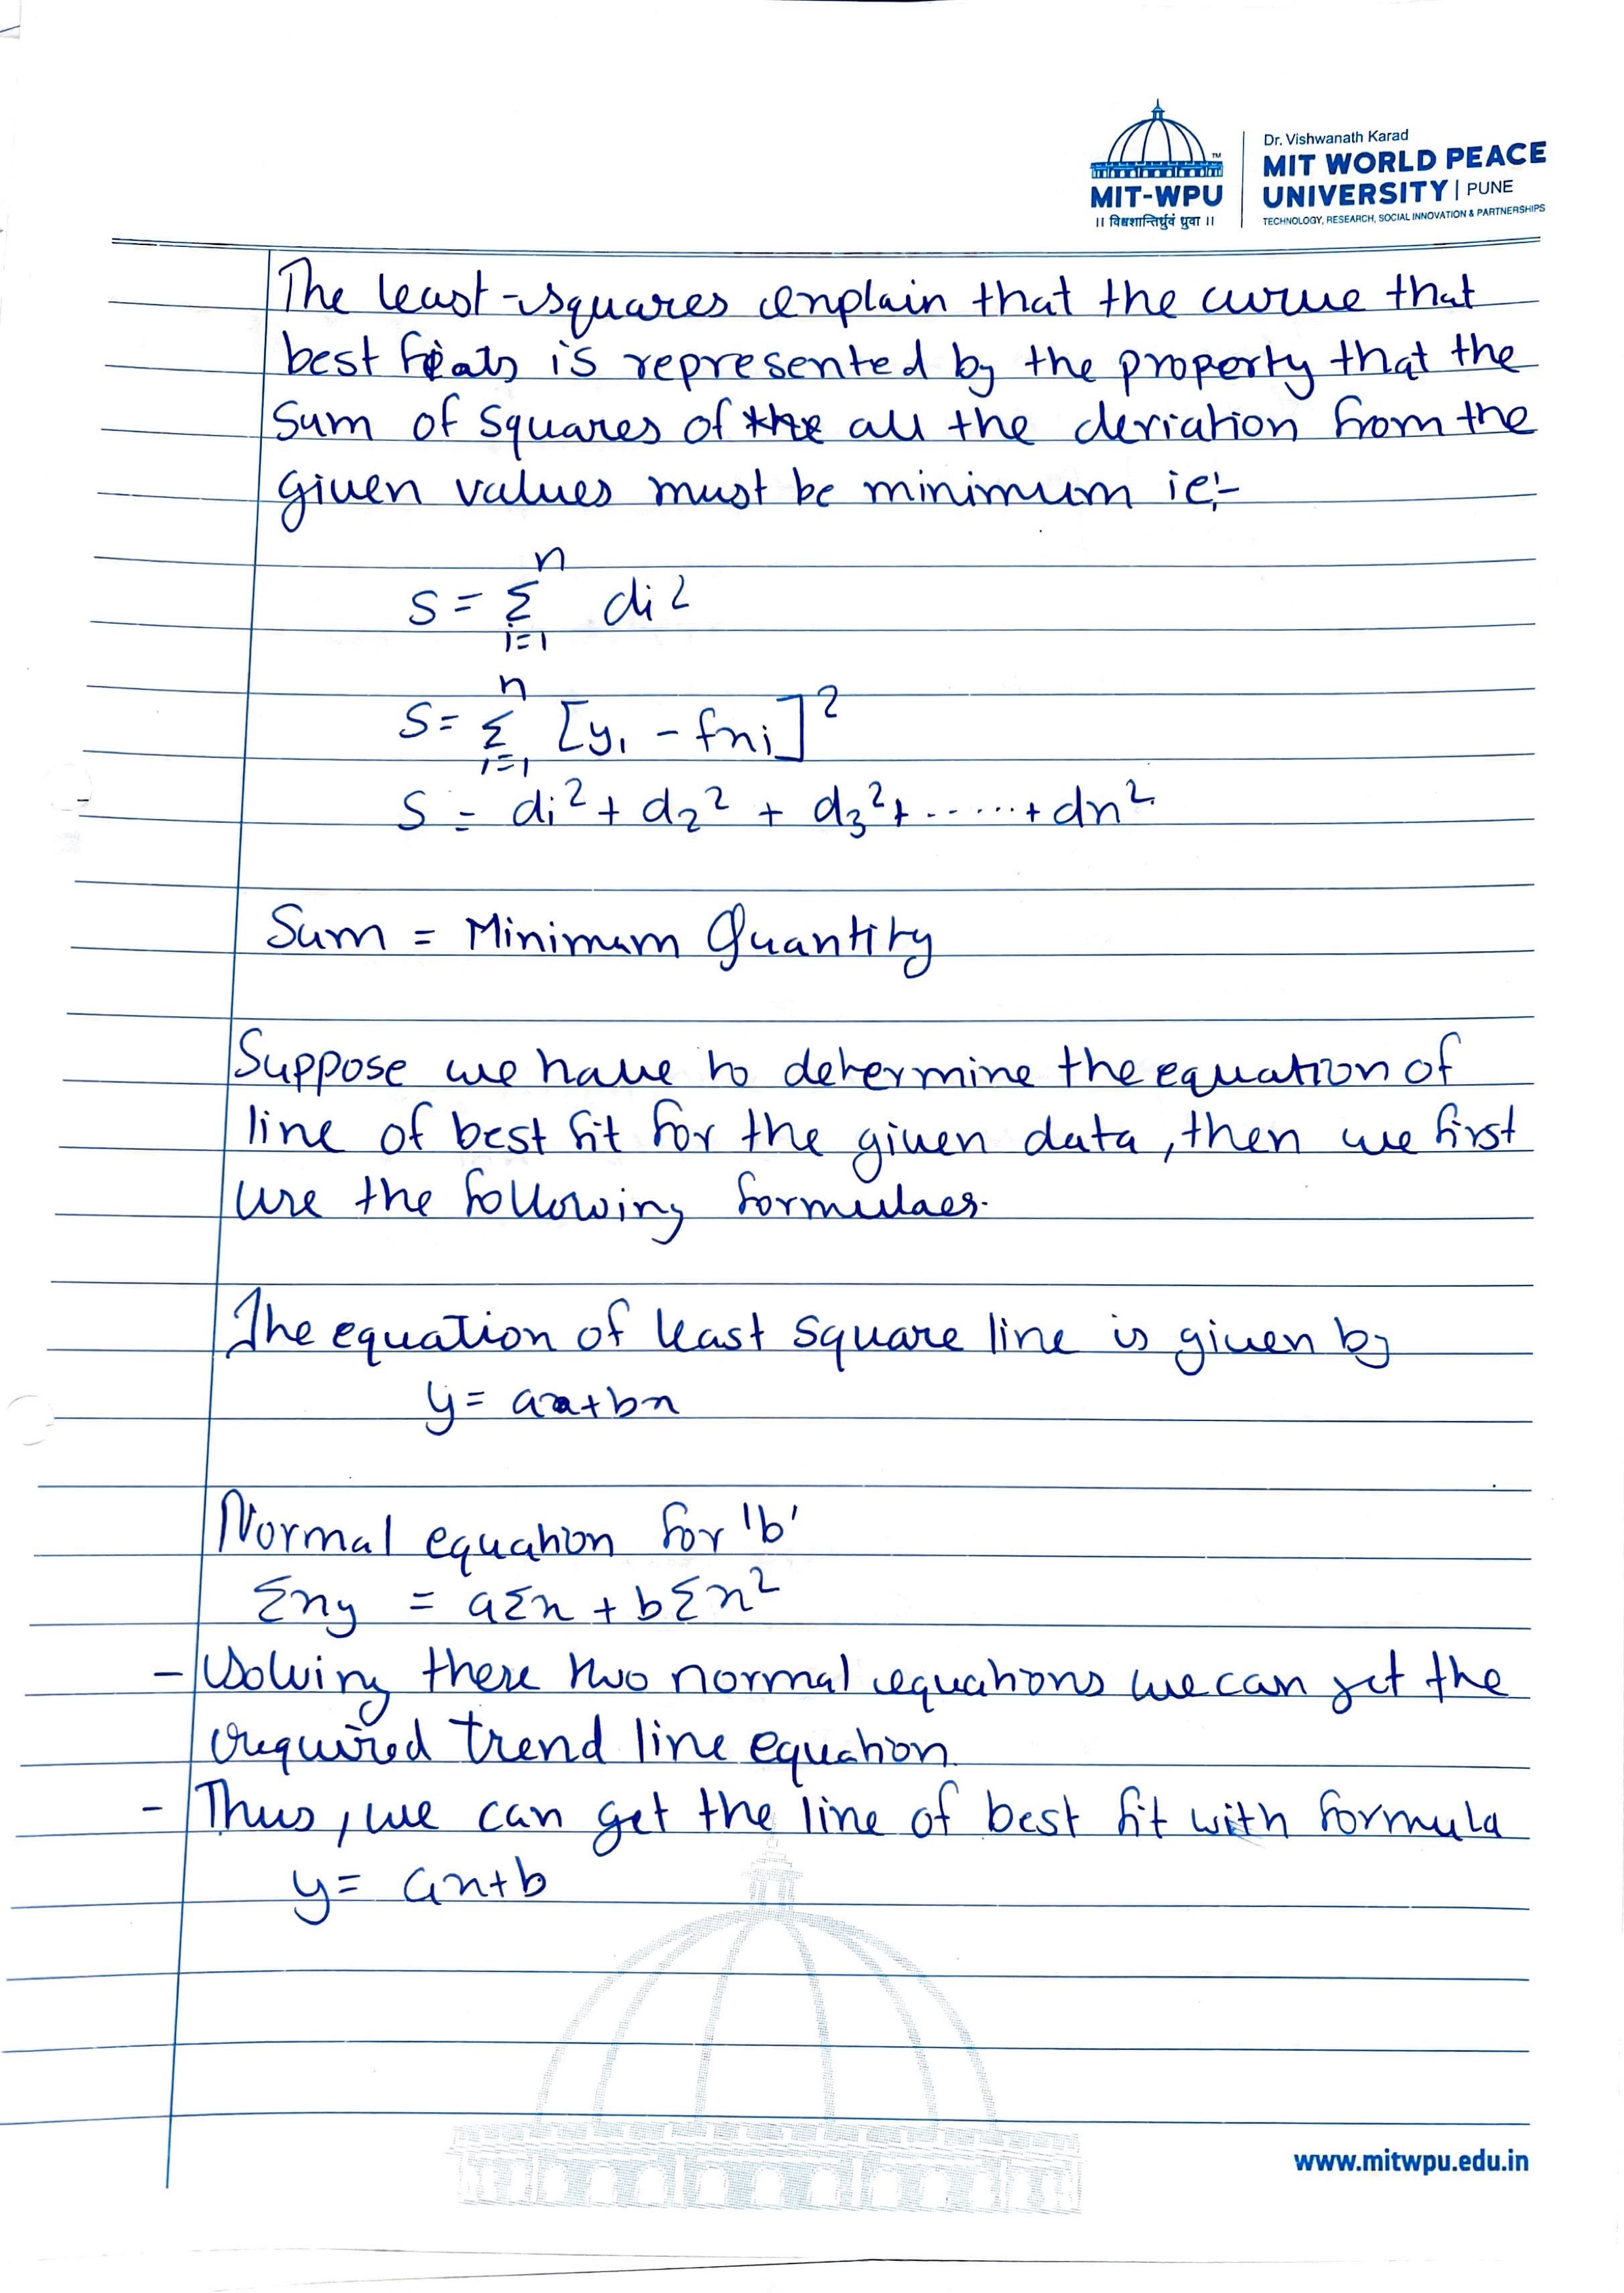 Dr. Vishwanath Karad
MIT WORLD PEACE
UNIVERSITY | PUNE
TECHNOLOGY, RESEARCH, SOCIAL INNOVATION & PARTNERSHIPS
MIT-WPU
।। विश्वशान्तिर्ध्रुवं ध्रुवा ।।
The least-squares explain that the curve that
best fits is represented by the property that the
Sum of squares of all the deviation from the
given values must be minimum ie:-
S = Σ_{i=1}^{n} di²
S = Σ_{i=1}^{n} [y₁ - fxi]²
S = di² + d₂² + d₃² + ...... + dn²
Sum = Minimum Quantity
Suppose we have to determine the equation of
line of best fit for the given data, then we first
use the following formulaes.
The equation of least square line is given by
y = a+bx
Normal equation for 'b'
Σxy = aΣx + bΣx²
- Solving these two normal equations we can get the
required trend line equation.
- Thus, we can get the line of best fit with formula
y = ax+b
www.mitwpu.edu.in